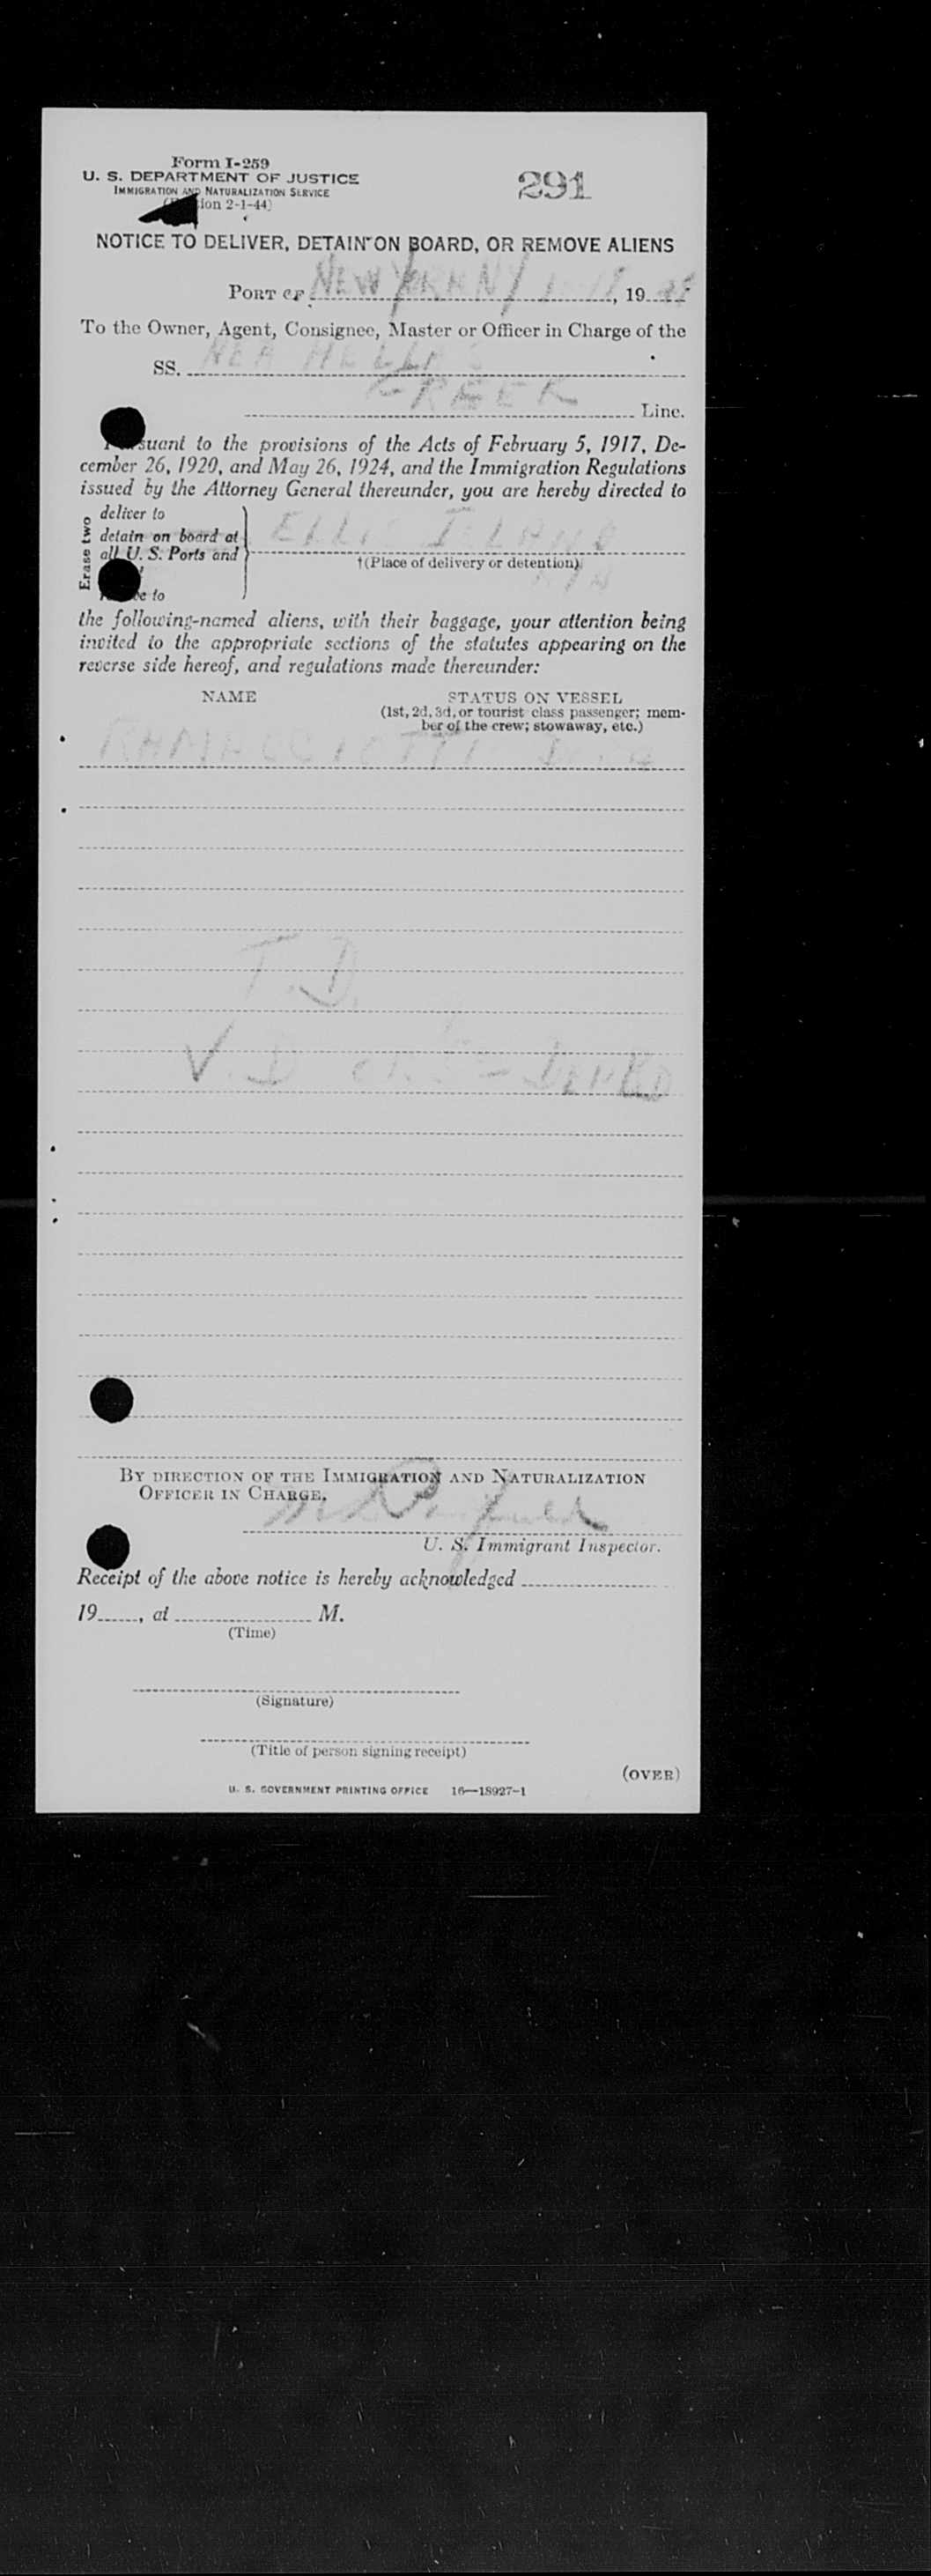 Form I-259
U. S. DEPARTMENT OF JUSTICE
IMMIGRATION AND NATURALIZATION SERVICE
ion 2-1-44)
291
NOTICE TO DELIVER, DETAIN ON BOARD, OR REMOVE ALIENS
PORT OF NEW YORK NY, 19
To the Owner, Agent, Consignee, Master or Officer in Charge of the
SS. NEA HELLAS
GREEK Line.
suant to the provisions of the Acts of February 5, 1917, De-
cember 26, 1920, and May 26, 1924, and the Immigration Regulations
issued by the Attorney General thereunder, you are hereby directed to
Erase two
deliver to
detain on board at
all U. S. Ports and
ELLIS ISLAND
†(Place of delivery or detention)
e to
the following-named aliens, with their baggage, your attention being
invited to the appropriate sections of the statutes appearing on the
reverse side hereof, and regulations made thereunder:
NAME STATUS ON VESSEL
(1st, 2d, 3d, or tourist class passenger; mem-
ber of the crew; stowaway, etc.)
T.D.
BY DIRECTION OF THE IMMIGRATION AND NATURALIZATION
OFFICER IN CHARGE.
U. S. Immigrant Inspector.
Receipt of the above notice is hereby acknowledged
19, at M.
(Time)
(Signature)
(Title of person signing receipt)
(OVER)
U. S. GOVERNMENT PRINTING OFFICE 16—18927-1